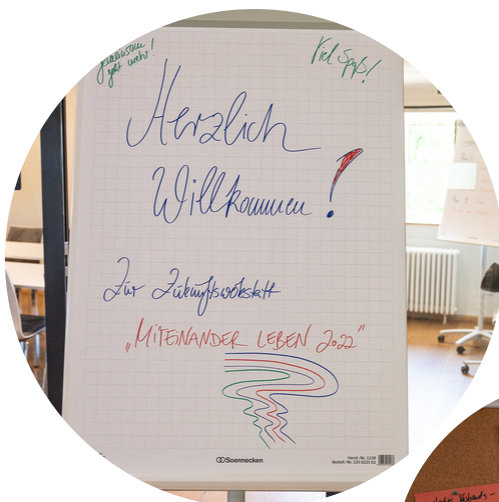 gemeinsam
geht mehr!
Viel Spaß!
Herzlich
Willkommen!
Zur Zukunftswerkstatt
„MITEINANDER LEBEN 2022"
Soennecken
Bestell. Nr.